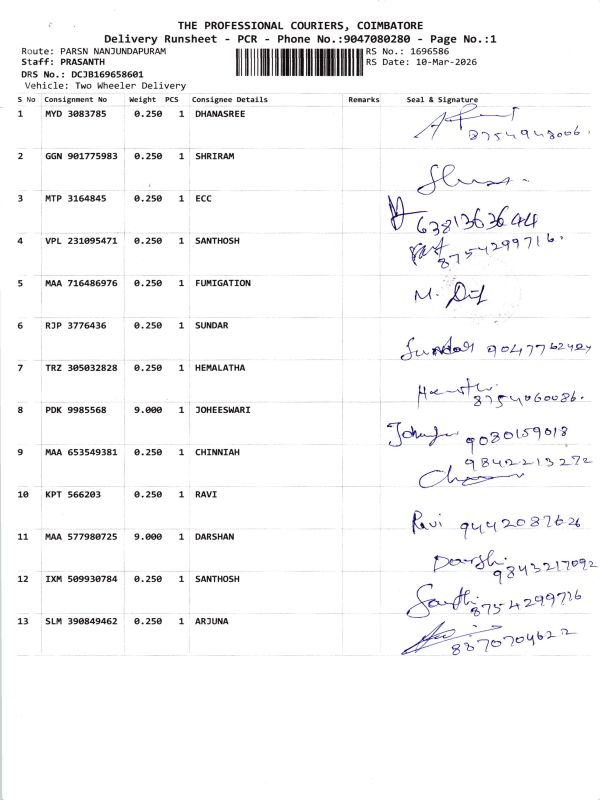 THE PROFESSIONAL COURIERS, COIMBATORE
Delivery Runsheet - PCR - Phone No.:9047080280 - Page No.:1
Route: PARSN NANJUNDAPURAM
RS No.: 1696586
Staff: PRASANTH
RS Date: 10-Mar-2026
DRS No.: DCJB169658601
Vehicle: Two Wheeler Delivery
S No Consignment No Weight PCS Consignee Details Remarks Seal & Signature
1 MYD 3083785 0.250 1 DHANASREE
8754948006.
2 GGN 901775983 0.250 1 SHRIRAM
3 MTP 3164845 0.250 1 ECC
6381363644
4 VPL 231095471 0.250 1 SANTHOSH
8754299716.
5 MAA 716486976 0.250 1 FUMIGATION
M.
6 RJP 3776436 0.250 1 SUNDAR
Sundar 9047762424
7 TRZ 305032828 0.250 1 HEMALATHA
8754060086.
8 PDK 9985568 9.000 1 JOHEESWARI
9080159018
9 MAA 653549381 0.250 1 CHINNIAH
9842213272
10 KPT 566203 0.250 1 RAVI
Ravi 9442087626
11 MAA 577980725 9.000 1 DARSHAN
9843217092
12 IXM 509930784 0.250 1 SANTHOSH
8754299716
13 SLM 390849462 0.250 1 ARJUNA
8870704622